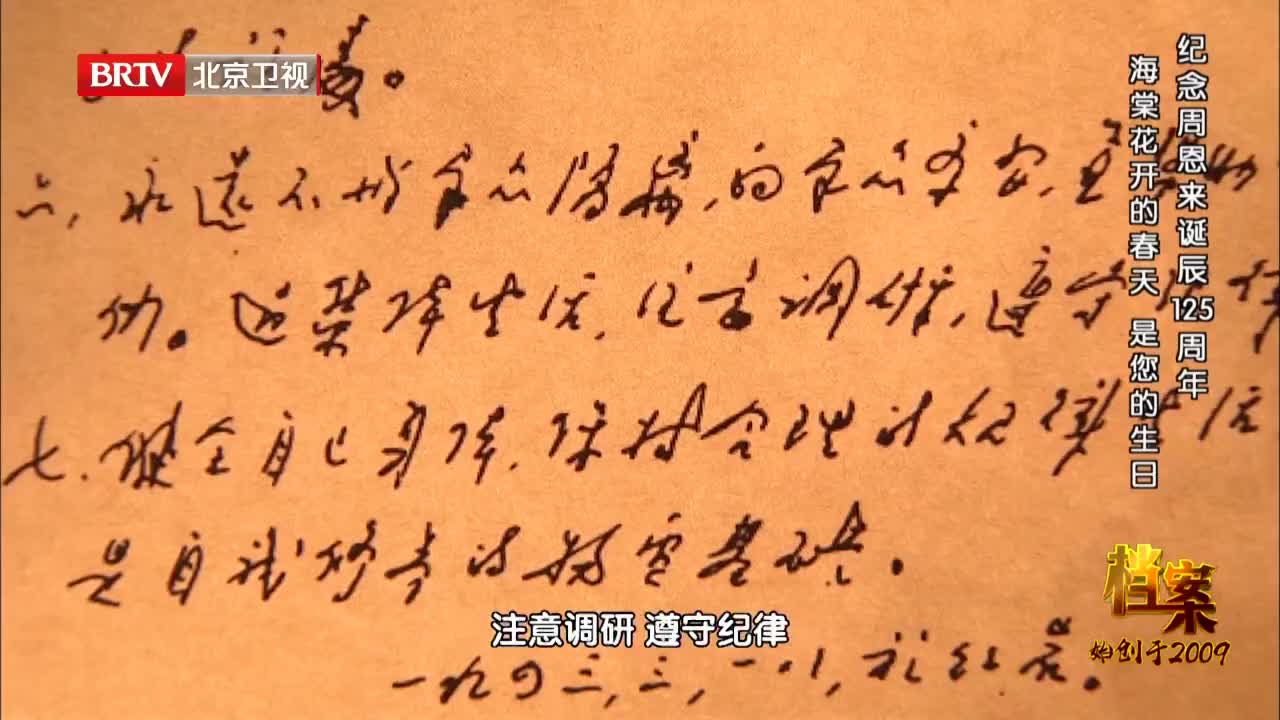 BRTV 北京卫视
纪念周恩来诞辰125周年
海棠花开的春天 是您的生日
六、永远不与群众隔离,向群众学习,
伍。过集体生活,注意调研,遵守
七、健全自己身体,保持合理的规律生活
是自我修养的物质基础。
注意调研 遵守纪律
一九四三,三,一八,于红岩。
档案
始创于2009